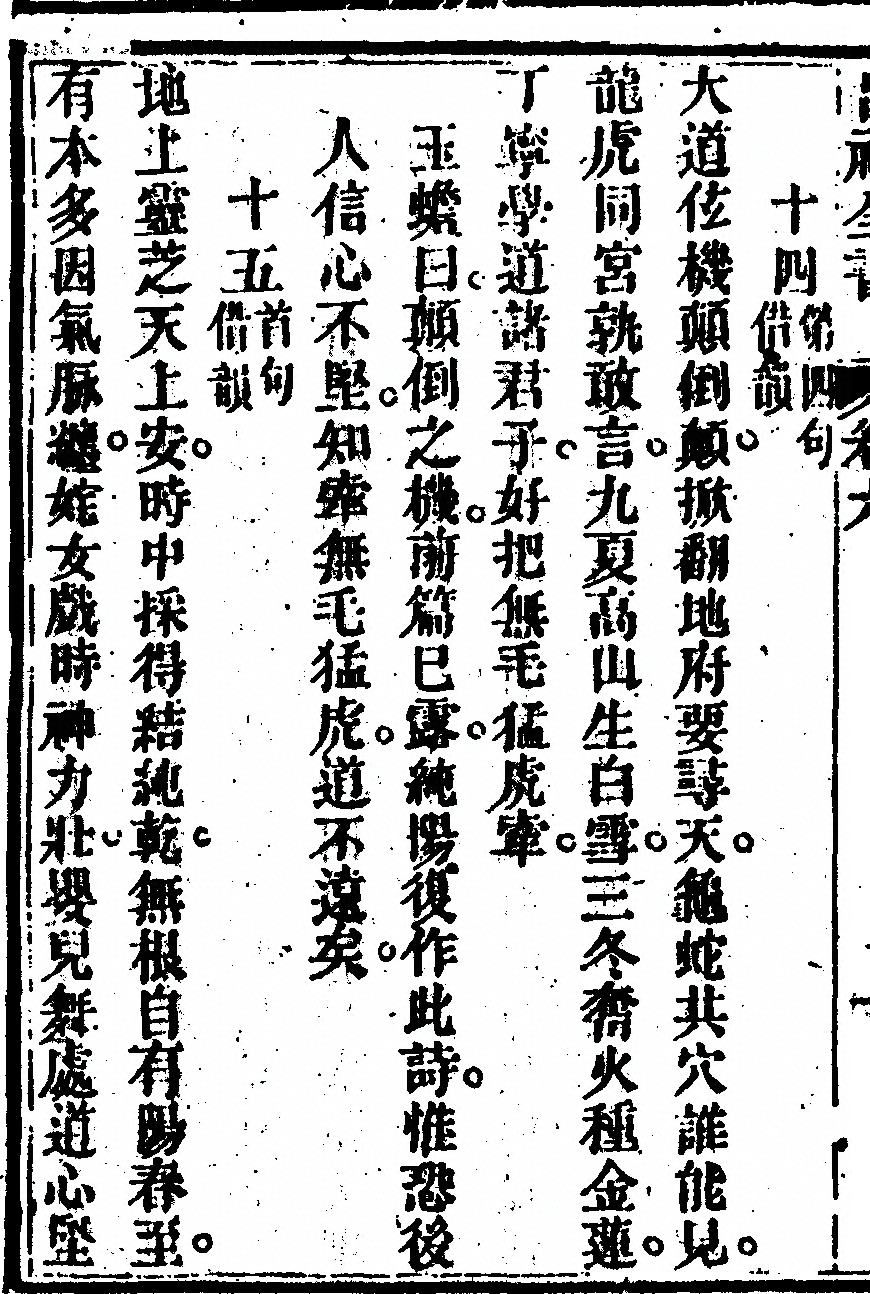 十四 第四句借韻
大道伭機顛倒顛掀翻地府要尋天龜蛇共穴誰能見
龍虎同宮孰敢言九夏高山生白雪三冬奮火種金蓮
丁寧學道諸君子好把無毛猛虎牽
玉蟾曰顛倒之機前篇已露純陽復作此詩惟恐後
人信心不堅知牽無毛猛虎道不遠矣
十五 首句借韻
地上靈芝天上安時中採得結純乾無根自有陽春至
有本多因氣脉纏姹女戲時神力壯嬰兒舞處道心堅